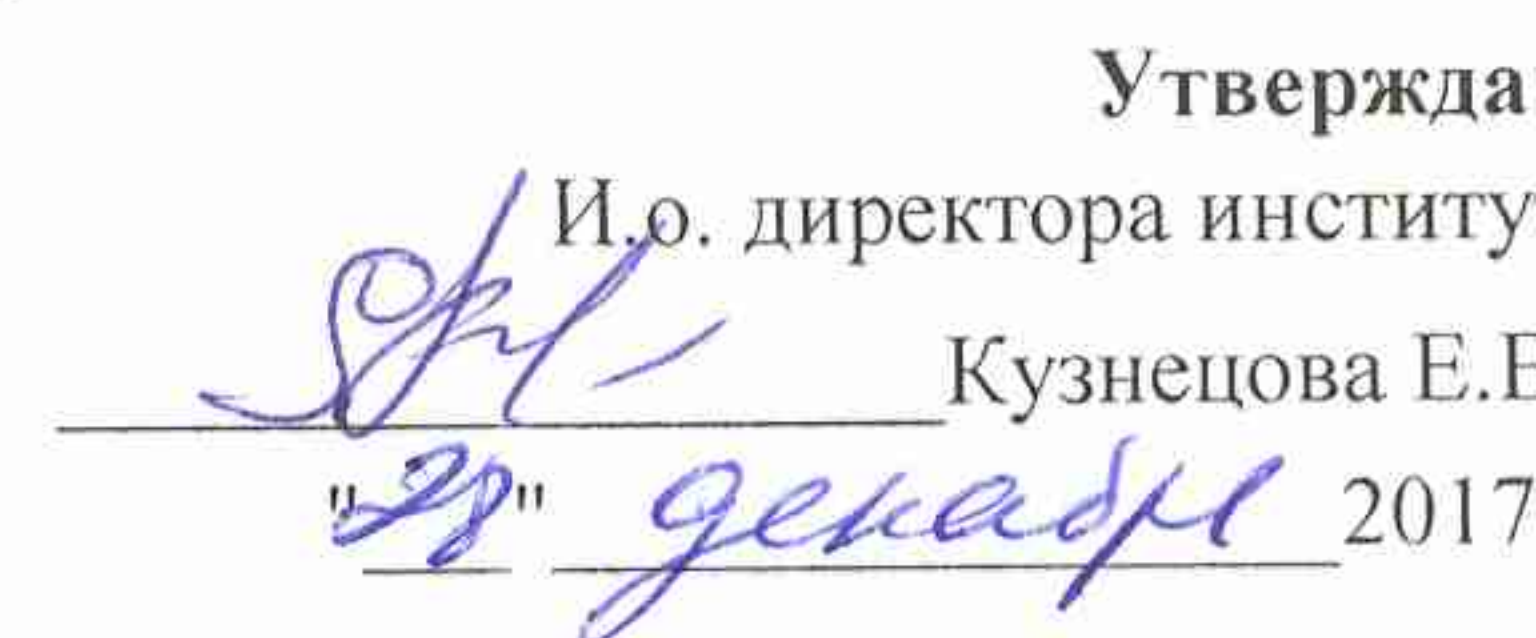 Утвержда
И.о. директора институ
Кузнецова Е.Е
"28" декабря 2017